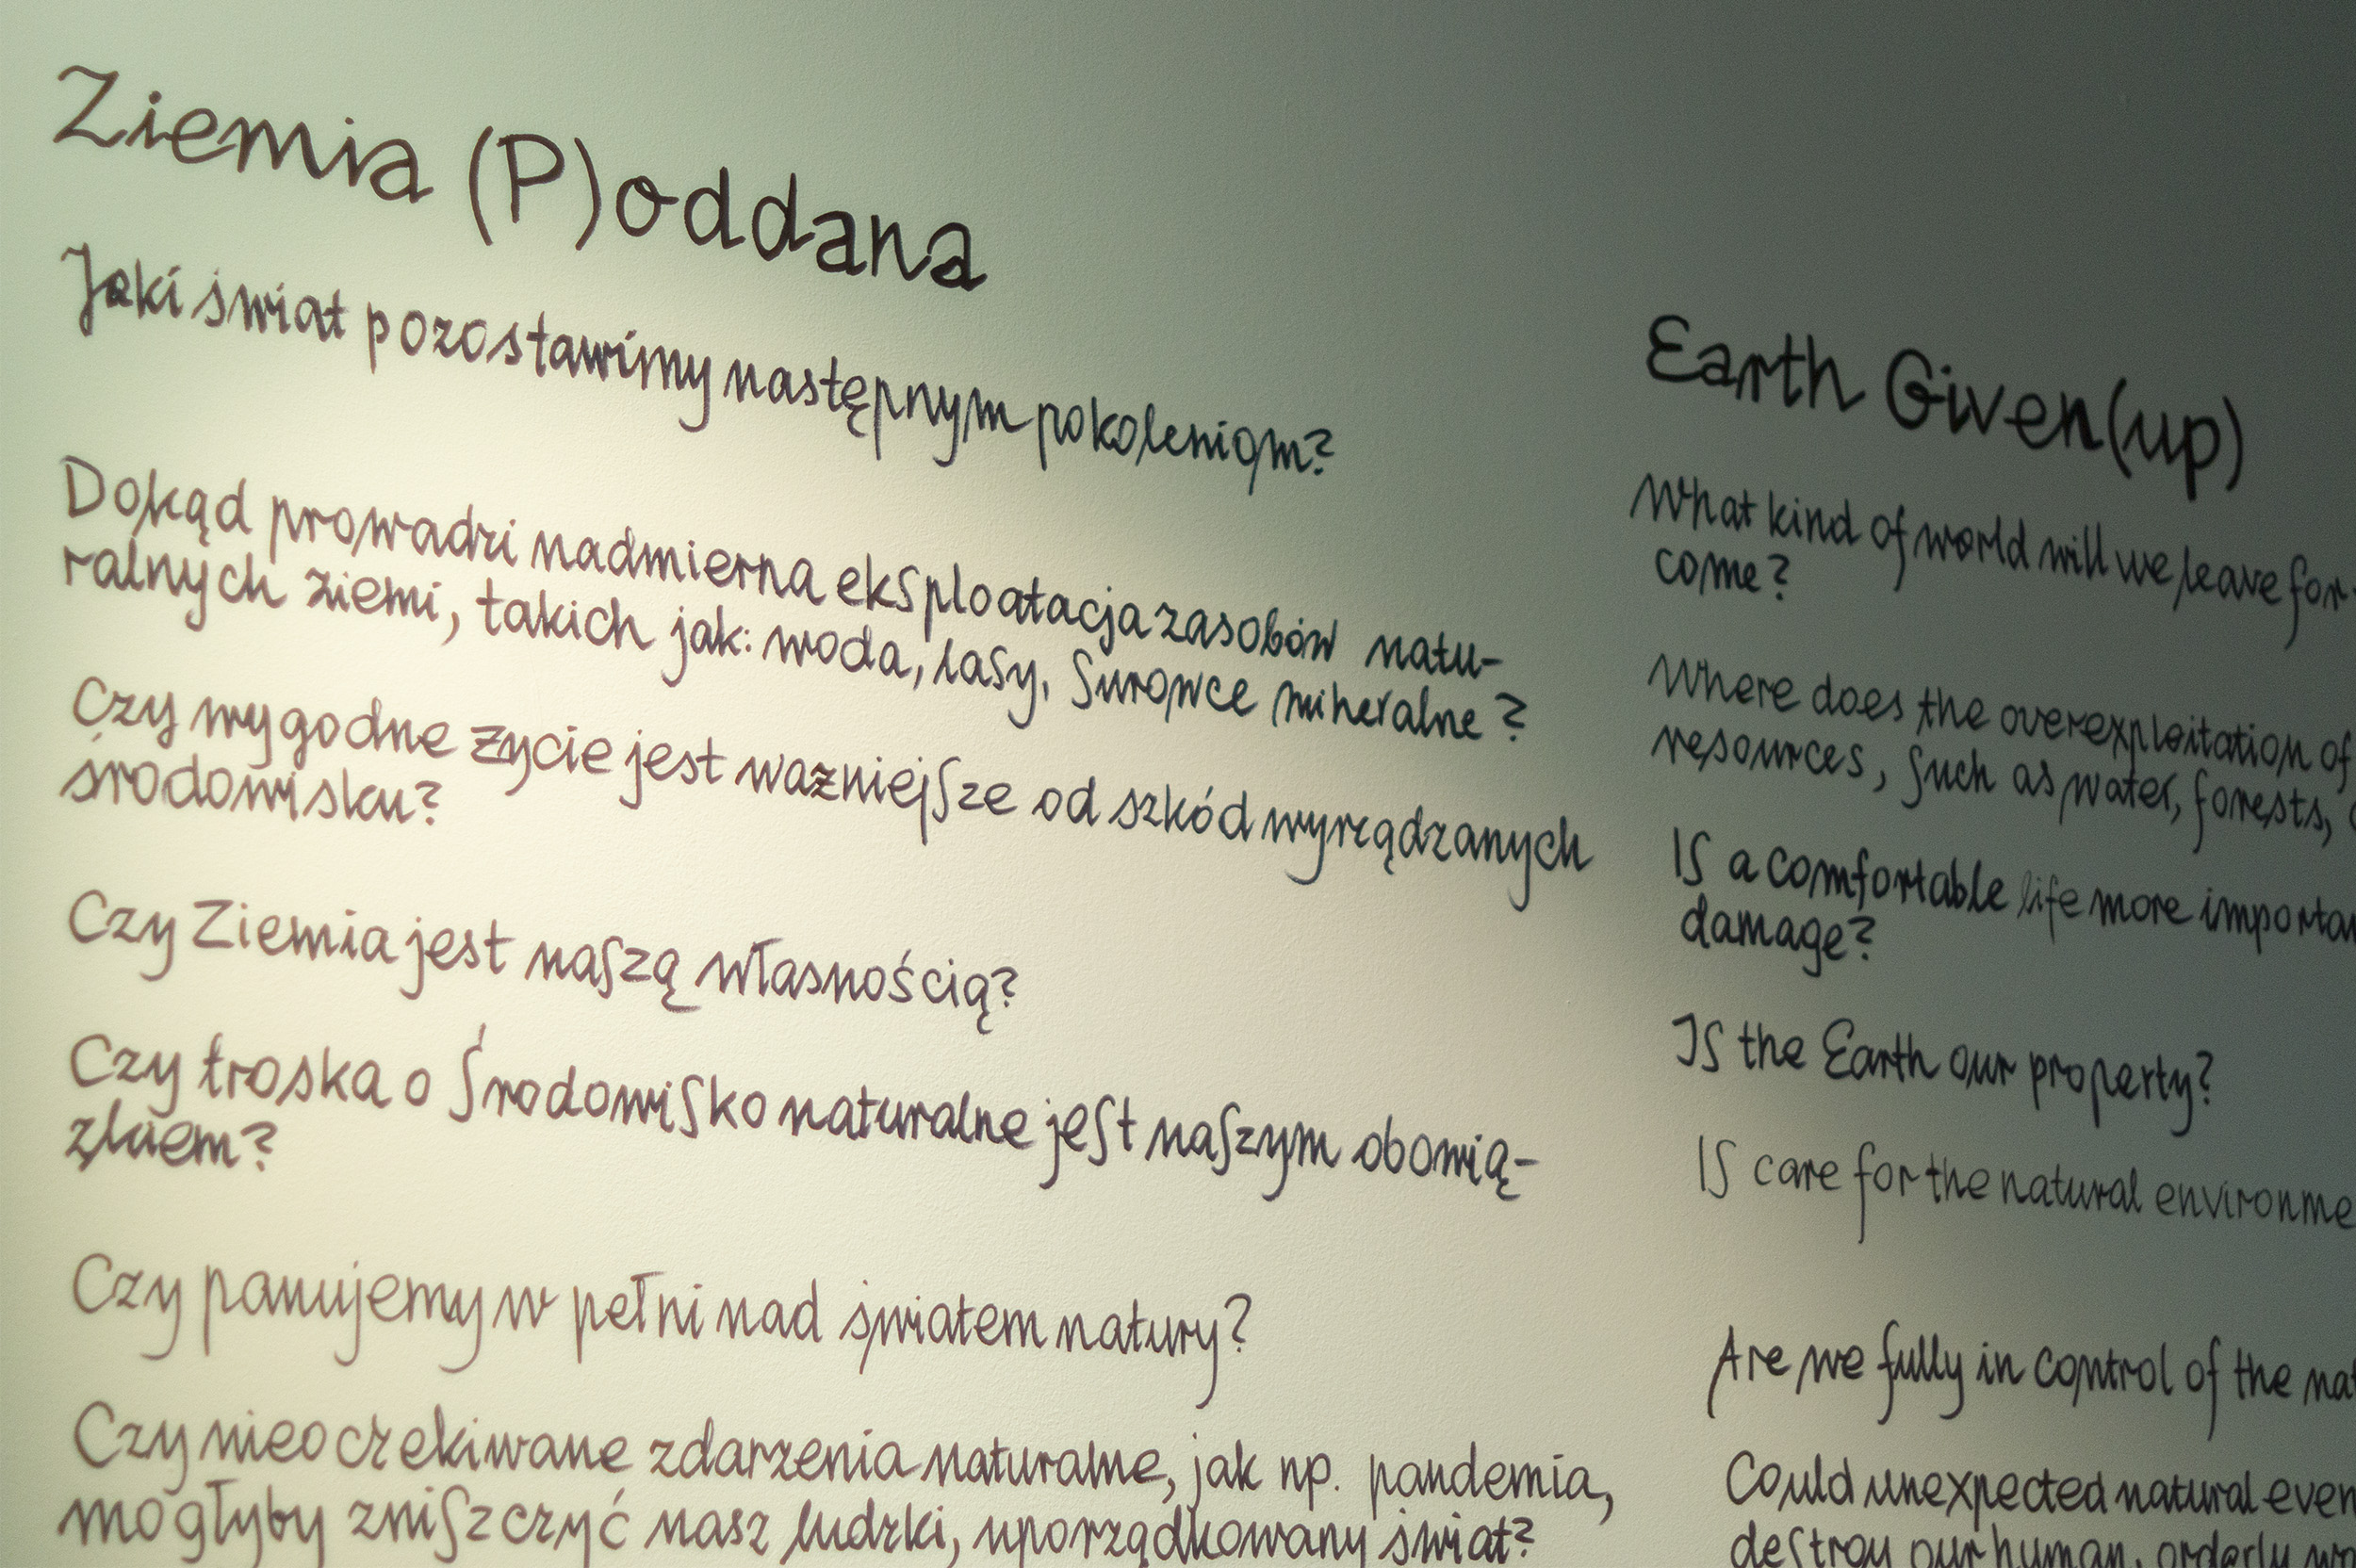 Ziemia (P)oddana
Jaki świat pozostawimy następnym pokoleniom?
Dokąd prowadzi nadmierna eksploatacja zasobów natu-
ralnych ziemi, takich jak: woda, lasy, surowce mineralne?
Czy wygodne życie jest ważniejsze od szkód wyrządzanych
środowisku?
Czy Ziemia jest naszą własnością?
Czy troska o środowisko naturalne jest naszym obowią-
zkiem?
Czy panujemy w pełni nad światem natury?
Czy nieoczekiwane zdarzenia naturalne, jak np. pandemia,
mogłyby zniszczyć nasz ludzki, uporządkowany świat?
Earth Given(up)
What kind of world will we leave for
come?
Where does the overexploitation of
resources, such as water, forests,
Is a comfortable life more importan
damage?
Is the Earth our property?
Is care for the natural environme
Are we fully in control of the nat
Could unexpected natural even
destroy our human, orderly wo